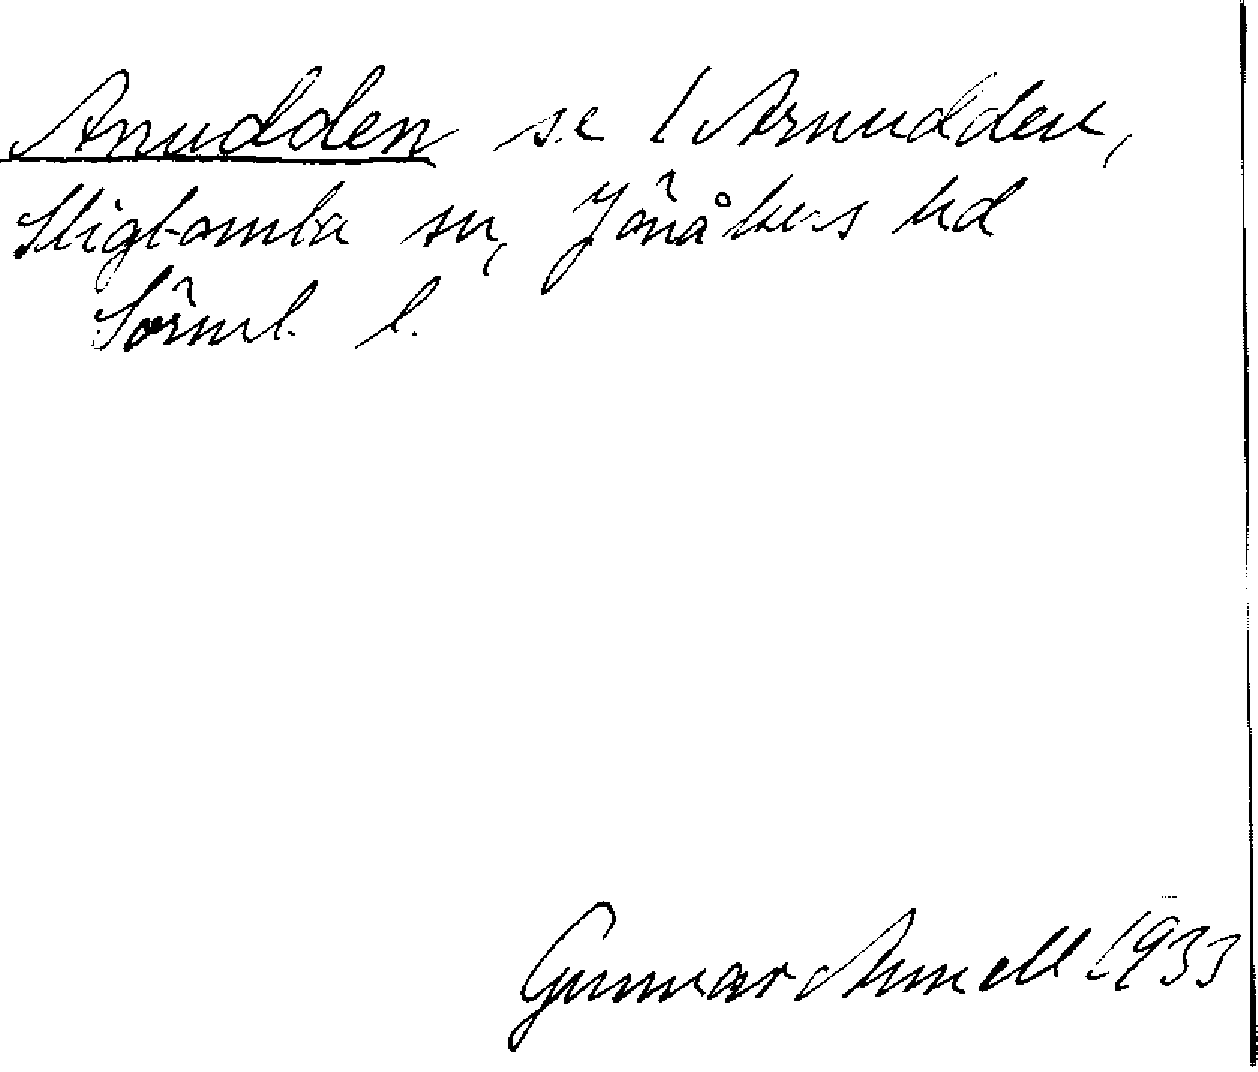 Anudden se / Arnudden,
Stigtomta sn, Jönåkers hd
Sörml. l.
Gunnar Amnell 1933